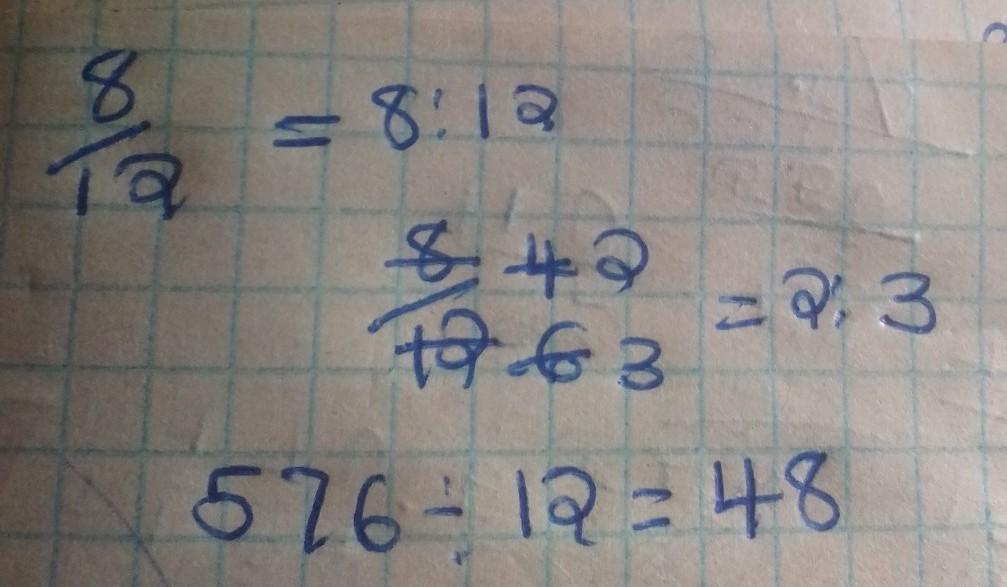 8/12 = 8:12
8/12 4/6 2/3 = 2:3
576 ÷ 12 = 48